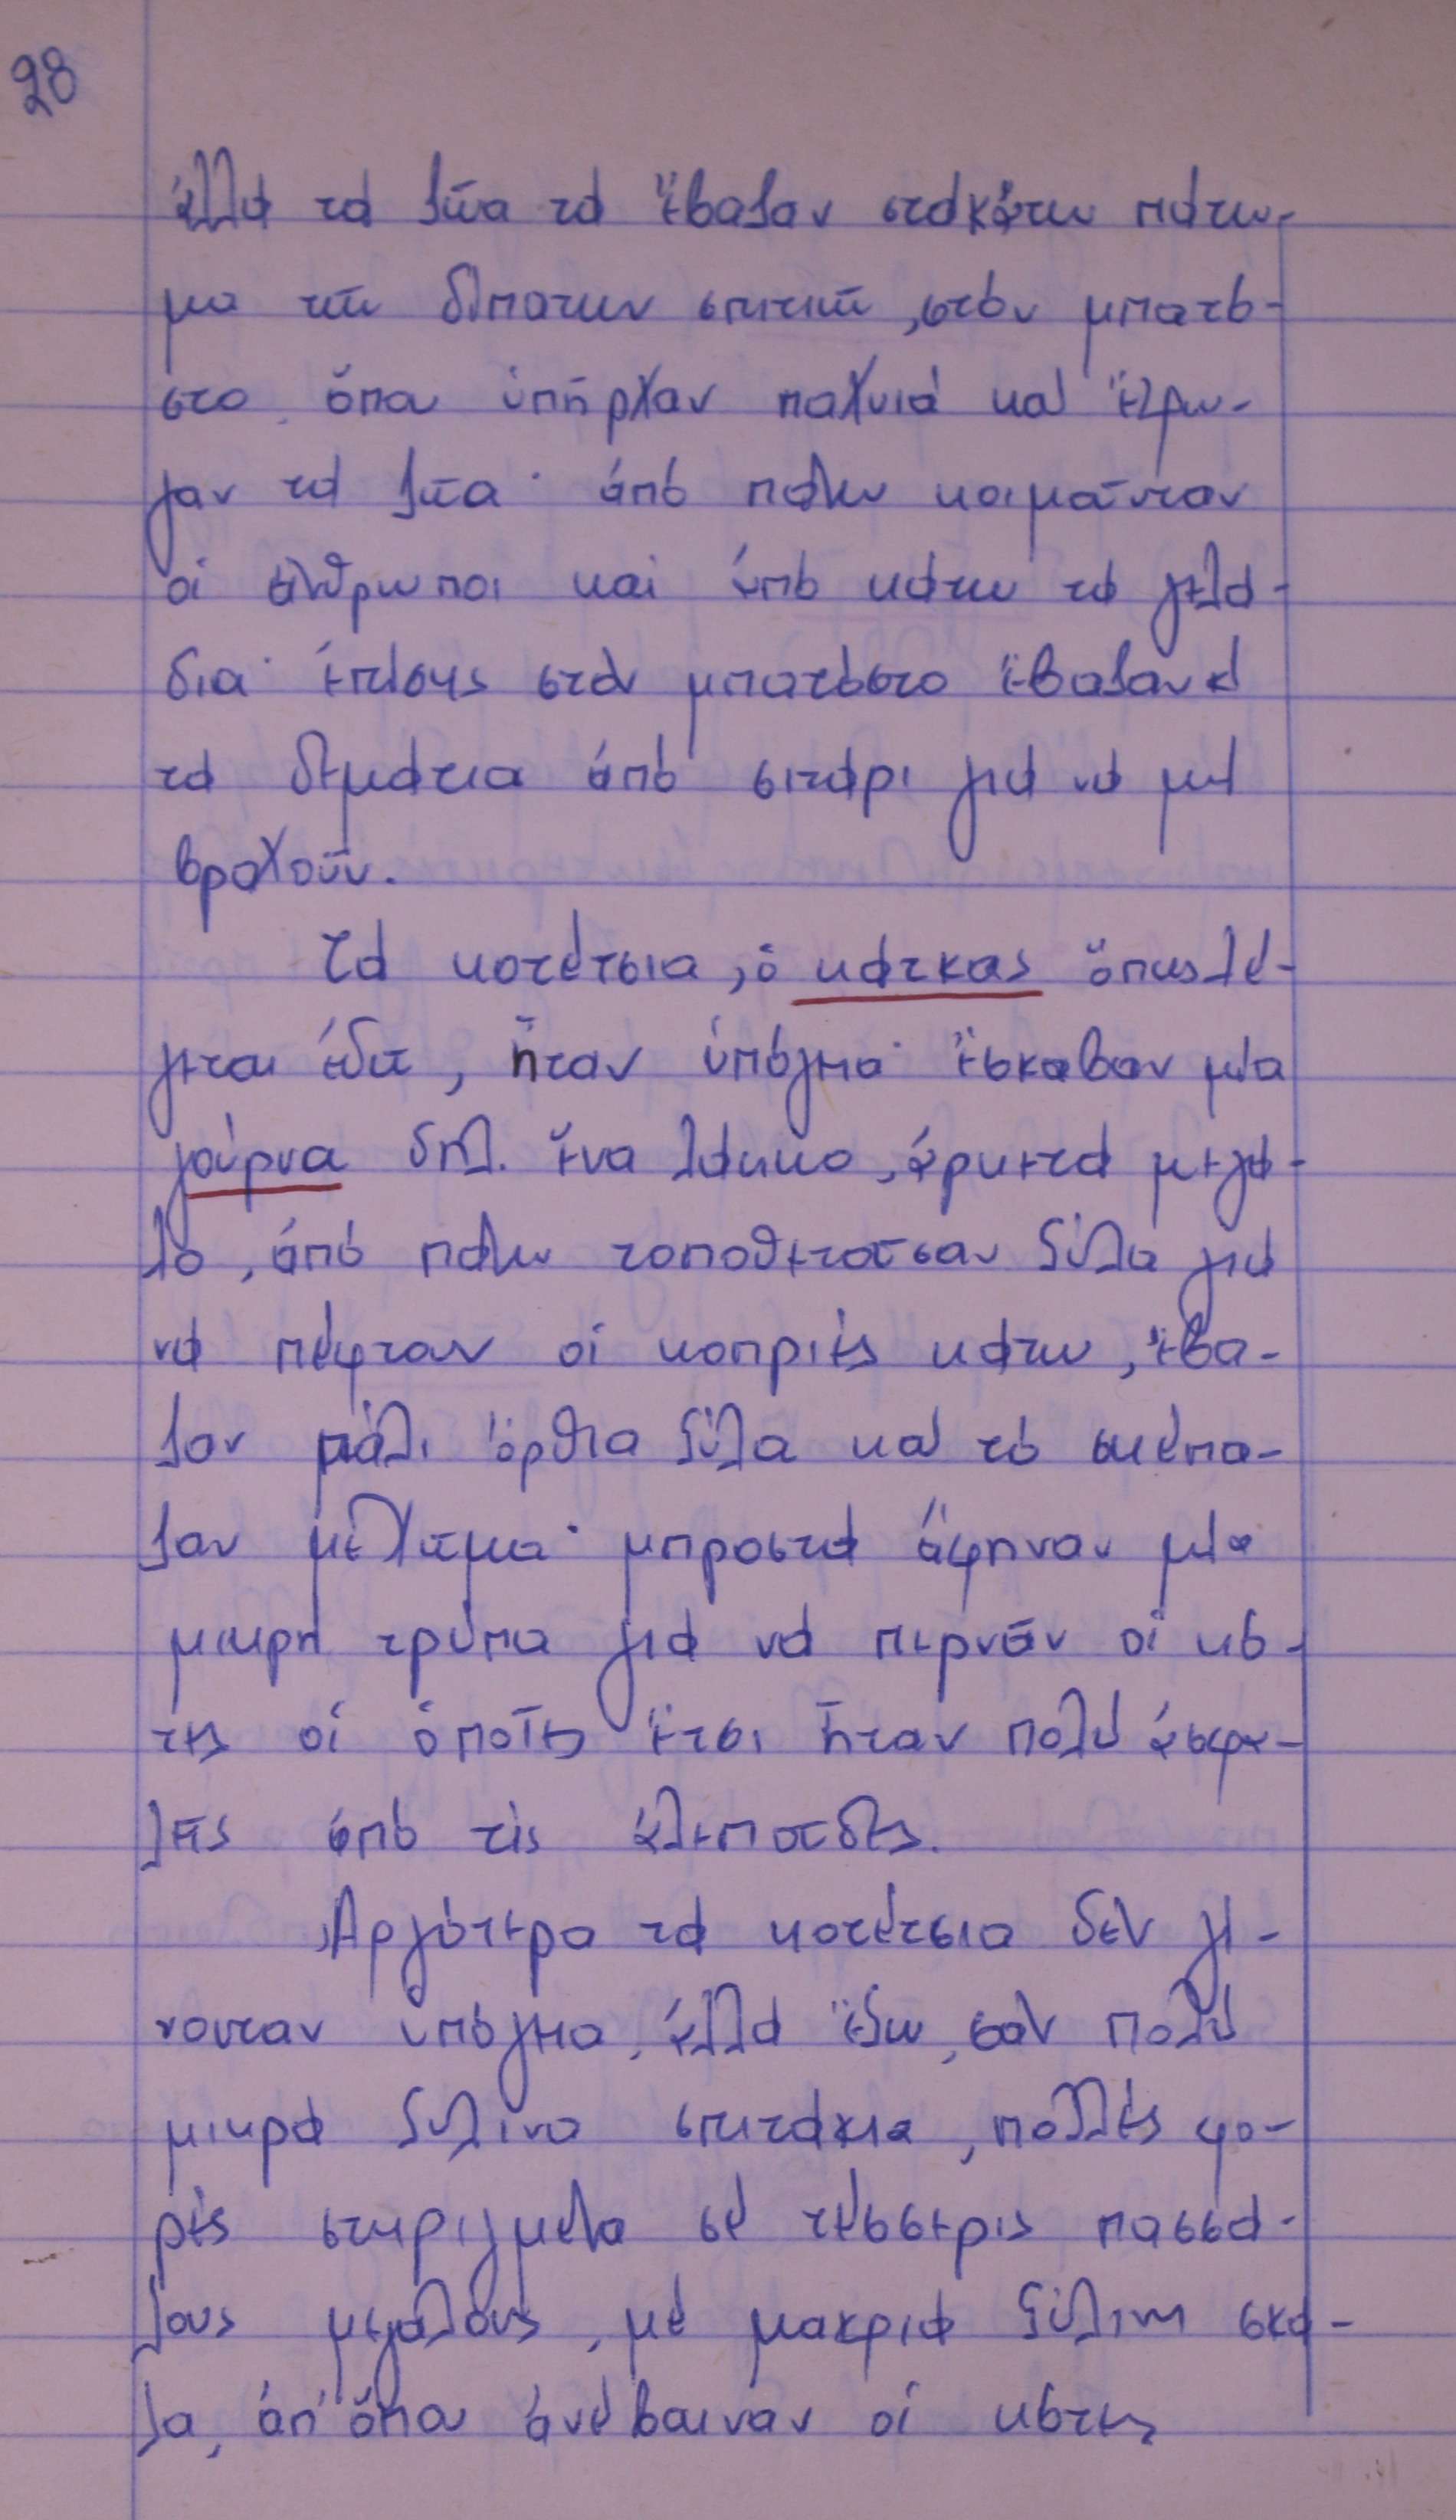 28
ἀλλά τά ζῶα τά ἔβαζαν στό κάτω πάτω-
μα τῶν δίπατων σπιτιῶν, στόν μπατό-
στο, ὅπου ὑπῆρχαν παχνιά καί ἔτρω-
γαν τά ζῶα· ἀπό πάνω κοιμοῦνταν
οἱ ἄνθρωποι καί ἀπό κάτω τά γελά-
δια· ἐπίσης στόν μπατόστο ἔβαζαν κ
τά δεμάτια ἀπό σιτάρι γιά νά μή
βραχοῦν.
Τά κοτέτσια, ὁ κάτκας ὅπως λέ-
γεται ἐδῶ, ἦταν ὑπόγεια· ἔσκαβαν μία
γούρνα δηλ. ἕνα λάκκο, ἀρκετά μεγά-
λο, ἀπό πάνω τοποθετοῦσαν ξύλα γιά
νά πέφτουν οἱ κοπριές κάτω, ἔβα-
ζαν πάλι ὄρθια ξύλα καί τό σκέπα-
ζαν μέ χῶμα· μπροστά ἄφηναν μία
μικρή τρύπα γιά νά περνᾶν οἱ κό-
τες οἱ ὁποῖες ἔτσι ἦταν πολύ ἀσφα-
λεῖς ἀπό τίς ἀλεποῦδες.
Ἀργότερα τά κοτέτσια δέν γί-
νονταν ὑπόγεια, ἀλλά ἔξω, σάν πολύ
μικρά ξύλινα σπιτάκια, πολλές φο-
ρές στηριγμένα σέ τέσσερις πασσά-
λους μεγάλους, μέ μακριά ξύλινη σκά-
λα, ἀπ' ὅπου ἀνέβαιναν οἱ κότες